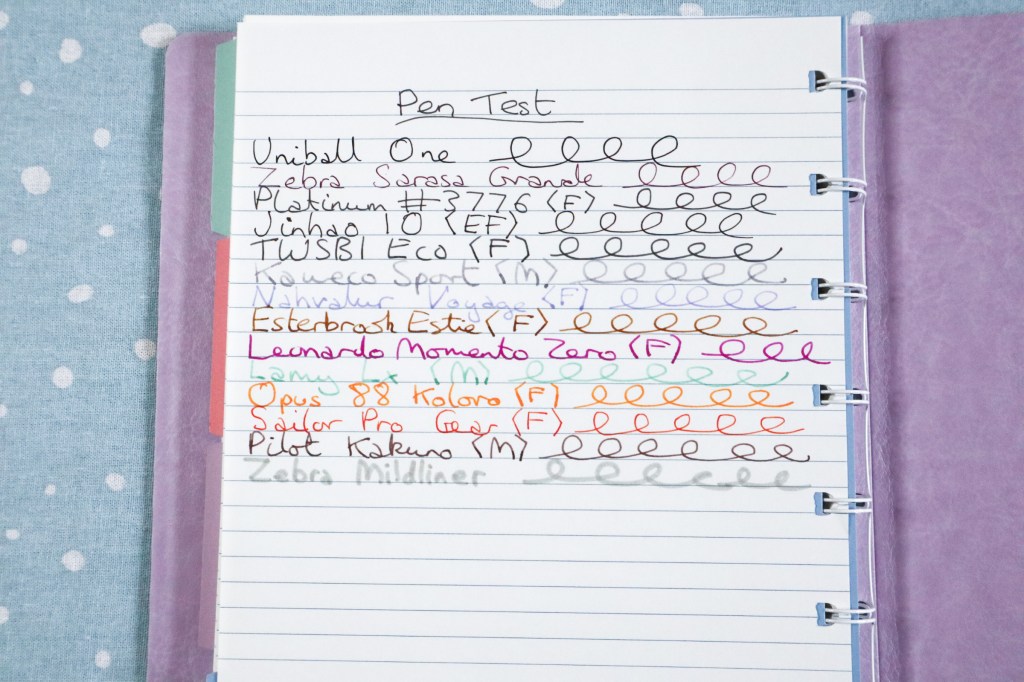 Pen Test
Uniball One
Zebra Sarasa Grande
Platinum #3776 (F)
Jinhao 10 (EF)
TWSBI Eco (F)
Kaweco Sport (M)
Nahvalur Voyage (F)
Esterbrook Estie (F)
Leonardo Momento Zero (F)
Lamy Lx (M)
Opus 88 Koloro (F)
Sailor Pro Gear (F)
Pilot Kakuno (M)
Zebra Mildliner